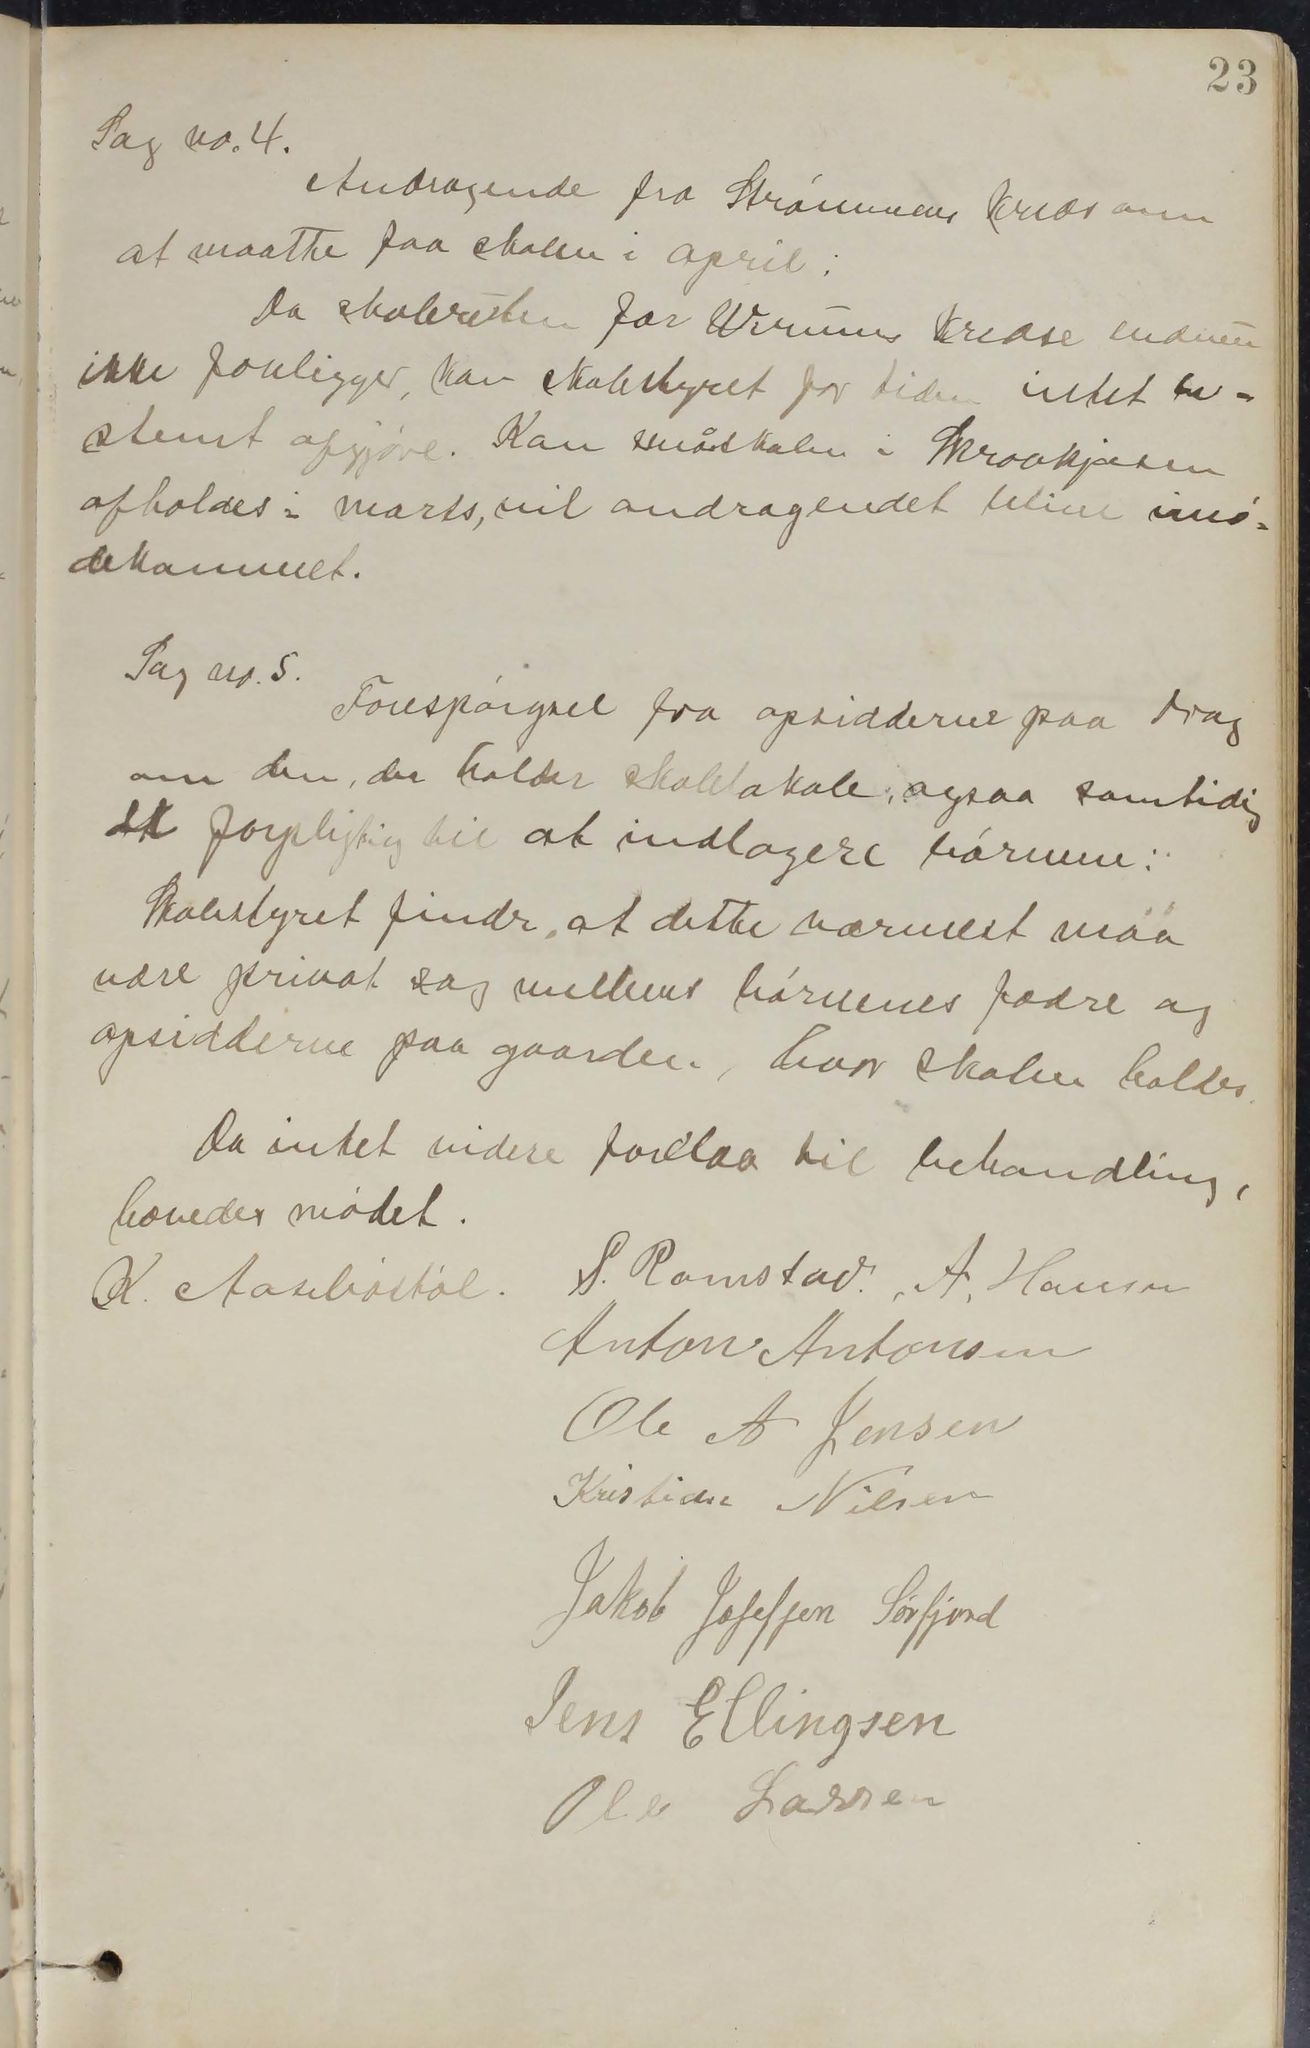 23
Sag no. 4.
Andragende fra Strømmens kreds om
at maatte faa skolen i april:
Da skoleruten for kredse endnu
ikke foreligger, kan skolestyret for tiden intet be-
stemt afgjøre. Kan småskolen i Skrovkjosen
afholdes i marts, vil andragendet blive imø-
dekommet.
Sag no. 5.
Forespørgsel fra opsidderne paa Drag
om den, der holder skolelokale, ogsaa samtidig
er forpligtig til at indlogere børnene:
Skolestyret findr, at dette nærmest måa
være privat sag mellem børnenes fædre og
opsidderne paa gaarden, hvor skolen holdes.
Da intet videre forelaa til behandling,
hævedes mødet.
K. Aasebøstøl. S. Ramstad. A. Hansen
Anton Antonsen
Ole A Jensen
Kristian Nilsen
Jakob Josefsen Sørfjord
Jens Ellingsen
Ole Larsen